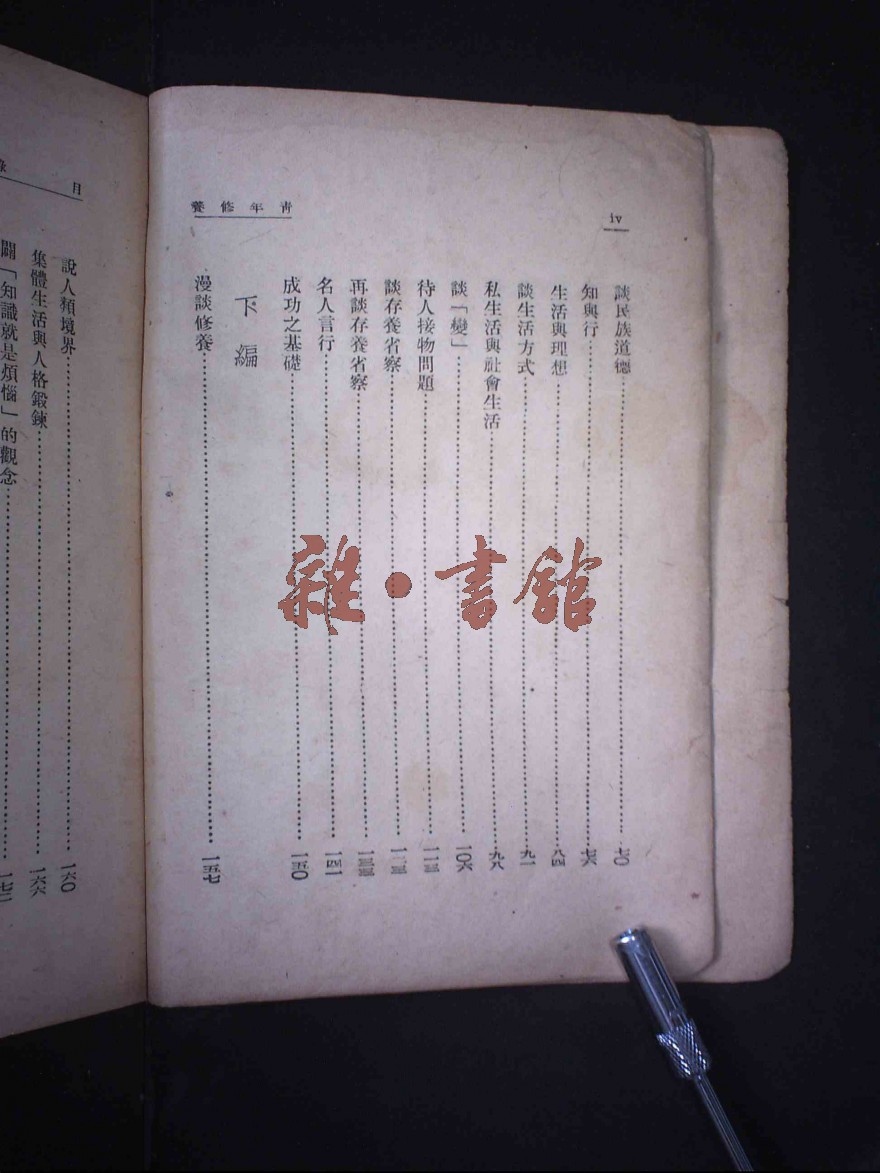 iv
青年修養
談民族道德……七〇
知與行……七六
生活與理想……八四
談生活方式……九一
私生活與社會生活……九八
談「變」……一〇六
待人接物問題……一一三
談存養省察……一二三
再談存養省察……一三三
名人言行……一四一
成功之基礎……一五〇
下編
漫談修養……一五七
目
說人類境界……一六〇
集體生活與人格鍛鍊……一六六
闢「知識就是煩惱」的觀念……一七二
雜·書館